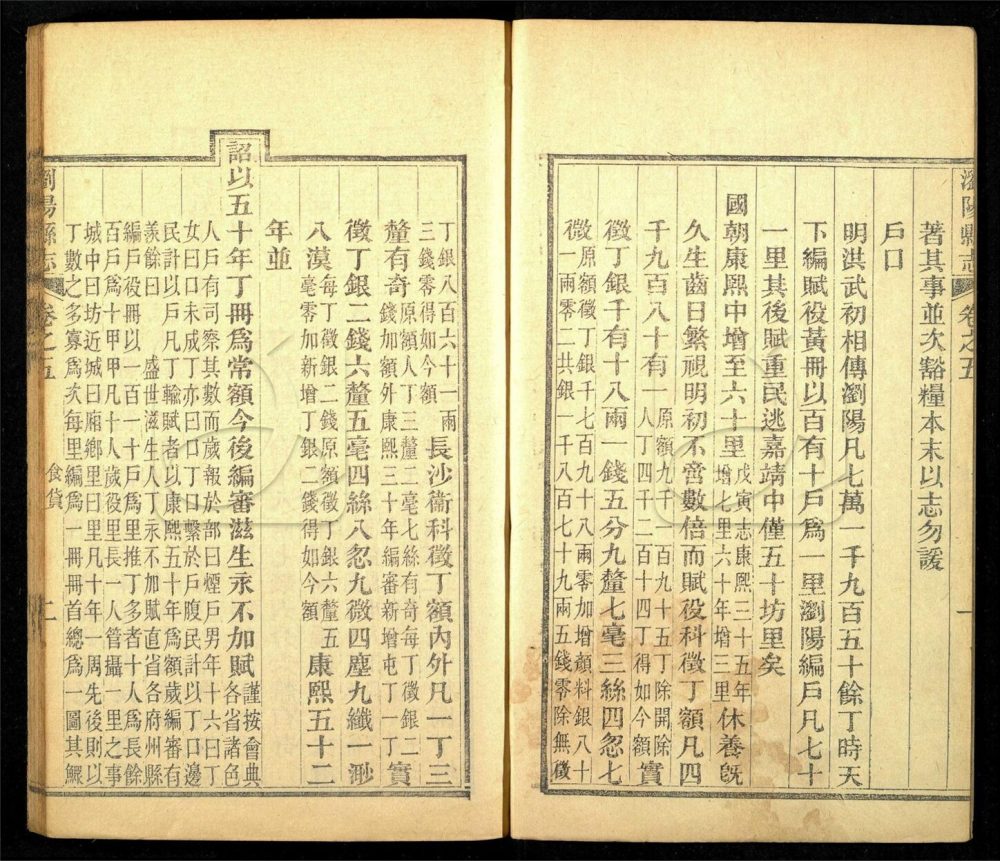 瀏陽縣志 卷之五 一
著其事並次豁糧本末以志勿諼
戶口
明洪武初相傳瀏陽凡七萬一千九百五十餘丁時天
下編賦役黃冊以百有十戶爲一里瀏陽編戶凡七十
一里其後賦重民逃嘉靖中僅五十坊里矣
國朝康熙中增至六十里
戊寅志康熙三十五年
增七里六十年增三里
休養旣
久生齒日繁視明初不啻數倍而賦役科徵丁額凡四
千九百八十有一
原額九千一百九十五丁除開除
人丁四千二百十四丁得如今額
實
徵丁銀千有十八兩一錢五分九釐七毫三絲四忽七
微
原額徵丁銀千七百九十八兩零加增顏料銀八十
一兩零二共銀一千八百七十九兩五錢零除無徵
丁銀八百六十一兩
三錢零得如今額
長沙衞科徵丁額內外凡一丁三
釐有奇
原額人丁三釐二毫七絲有奇每丁徵銀二
錢加額外康熙三十年編審新增屯丁一丁
實
徵丁銀二錢六釐五毫四絲八忽九微四塵九纖一渺
八漠
每丁徵銀二錢原額徵丁銀六釐五
毫零加新增丁銀二錢得如今額
康熙五十二
年並
詔以五十年丁冊爲常額今後編審滋生永不加賦
謹按會典
各省諸色
人戶有司察其數而歲報於部曰煙戶男年十六曰丁
女曰口未成丁亦曰口丁口繫於戶腹民計以丁口邊
民計以戶凡丁輸賦者以康熙五十年爲額歲編審有
羨餘曰盛世滋生人丁永不加賦直省各府州縣
編戶役冊以一百一十戶爲里推丁多者十人爲長餘
百戶爲十甲甲凡十人歲役里長一人管攝一里之事
城中曰坊近城曰廂鄉里曰里凡十年一周先後則以
丁數之多寡爲次每里編爲一冊冊首總爲一圖其鰥
瀏陽縣志 卷之五 食貨 二